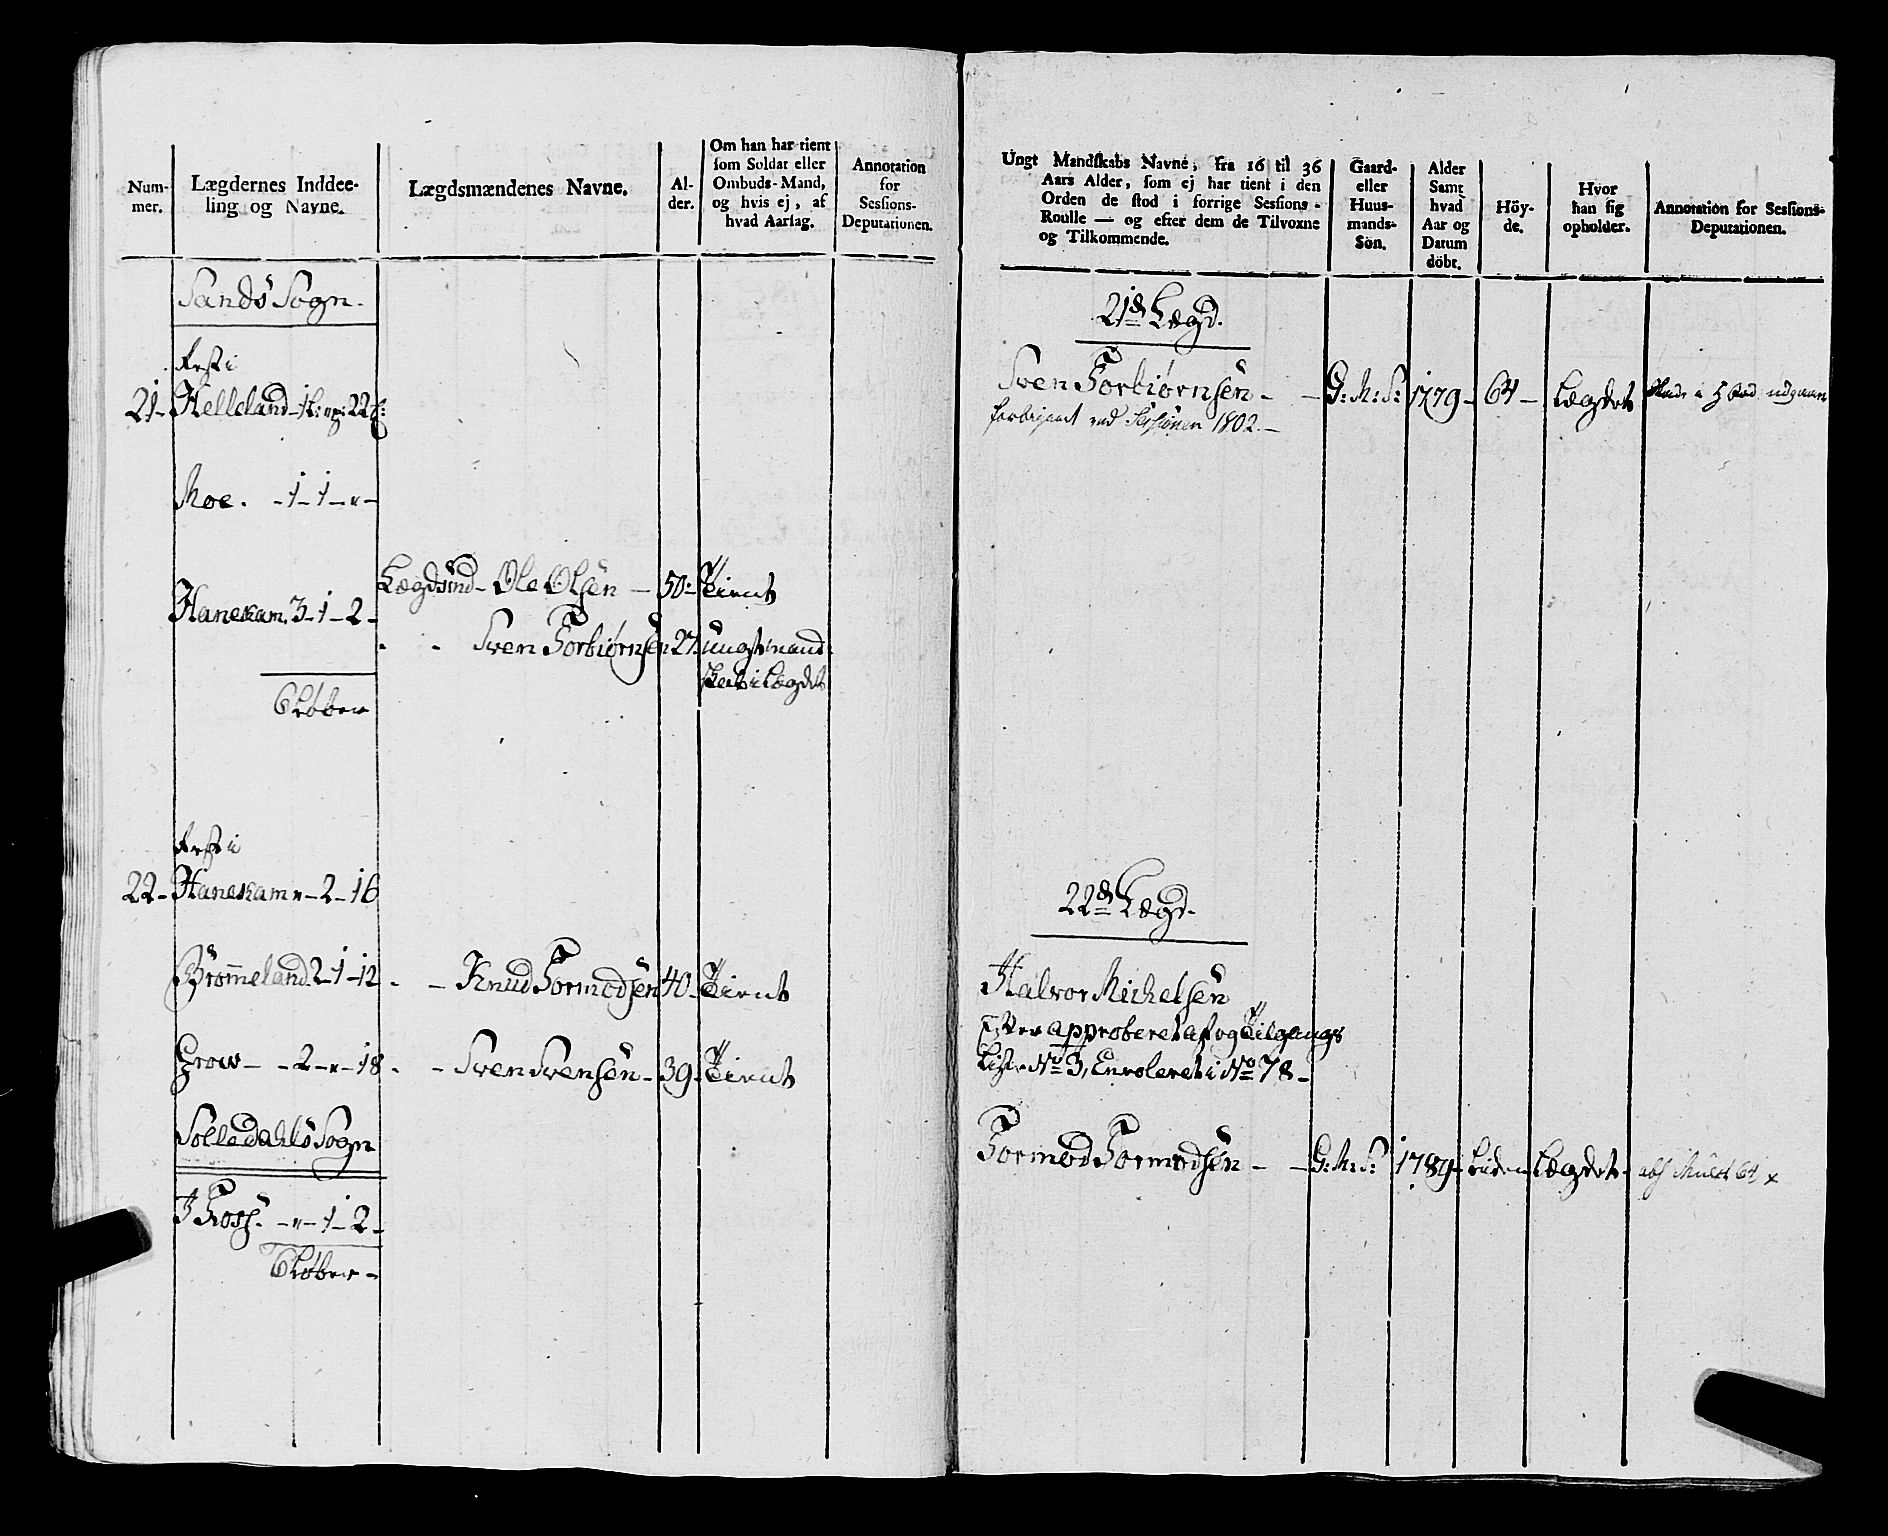 Num-
mer.
Lægdernes Inddee-
ling og Navne.
Lægdsmændenes Navne.
Al-
der.
Om han har tient
som Soldat eller
Ombuds-Mand,
og hvis ej, af
hvad Aarsag.
Annotation
for
Sessions-
Deputationen.
Sands Sogn.
Rest i
21- Helleland
Moe. - 1 - 1 - " -
Lægdsmd - Ole Olsen - 50. Tient
Hanekam. 3 - 1 - 2 -
Sven Torbiørnsen 27. ungt mand-
skab i Lægdet
6 Løber
Rest i
22- Hanekam " - 2 - 16
Brommeland 2 - 1 - 12 - - Knud Tormodsen 40. Tient
Grow - - 2 - " - 18 - - Sven Svensen - 39. Tient
Solledahls Sogn
- " - 1 - 2 -
6 Løber -
Ungt Mandskabs Navne, fra 16 til 36
Aars Alder, som ej har tient i den
Orden de stod i forrige Sessions-
Roulle — og efter dem de Tilvoxne
og Tilkommende.
Gaard-
eller
Huus-
mands-
Sön.
Alder
Samt
hvad
Aar og
Datum
döbt.
Höy-
de.
Hvor
han sig
opholder.
Annotation for Sessions-
Deputationen.
21de Lægd.
Sven Torbiørnsen - - G: M: S: 1779 - 64 - Lægdet
forbigaaet ved Sessionen 1802. -
22de Lægd.
Halvor Michelsen
Efter approberet af og Tilgangs
Liste No 3, Enroleret i No 78 -
Tormod Tormodsen - - G: M: S: 1789 - Liden Lægdet -